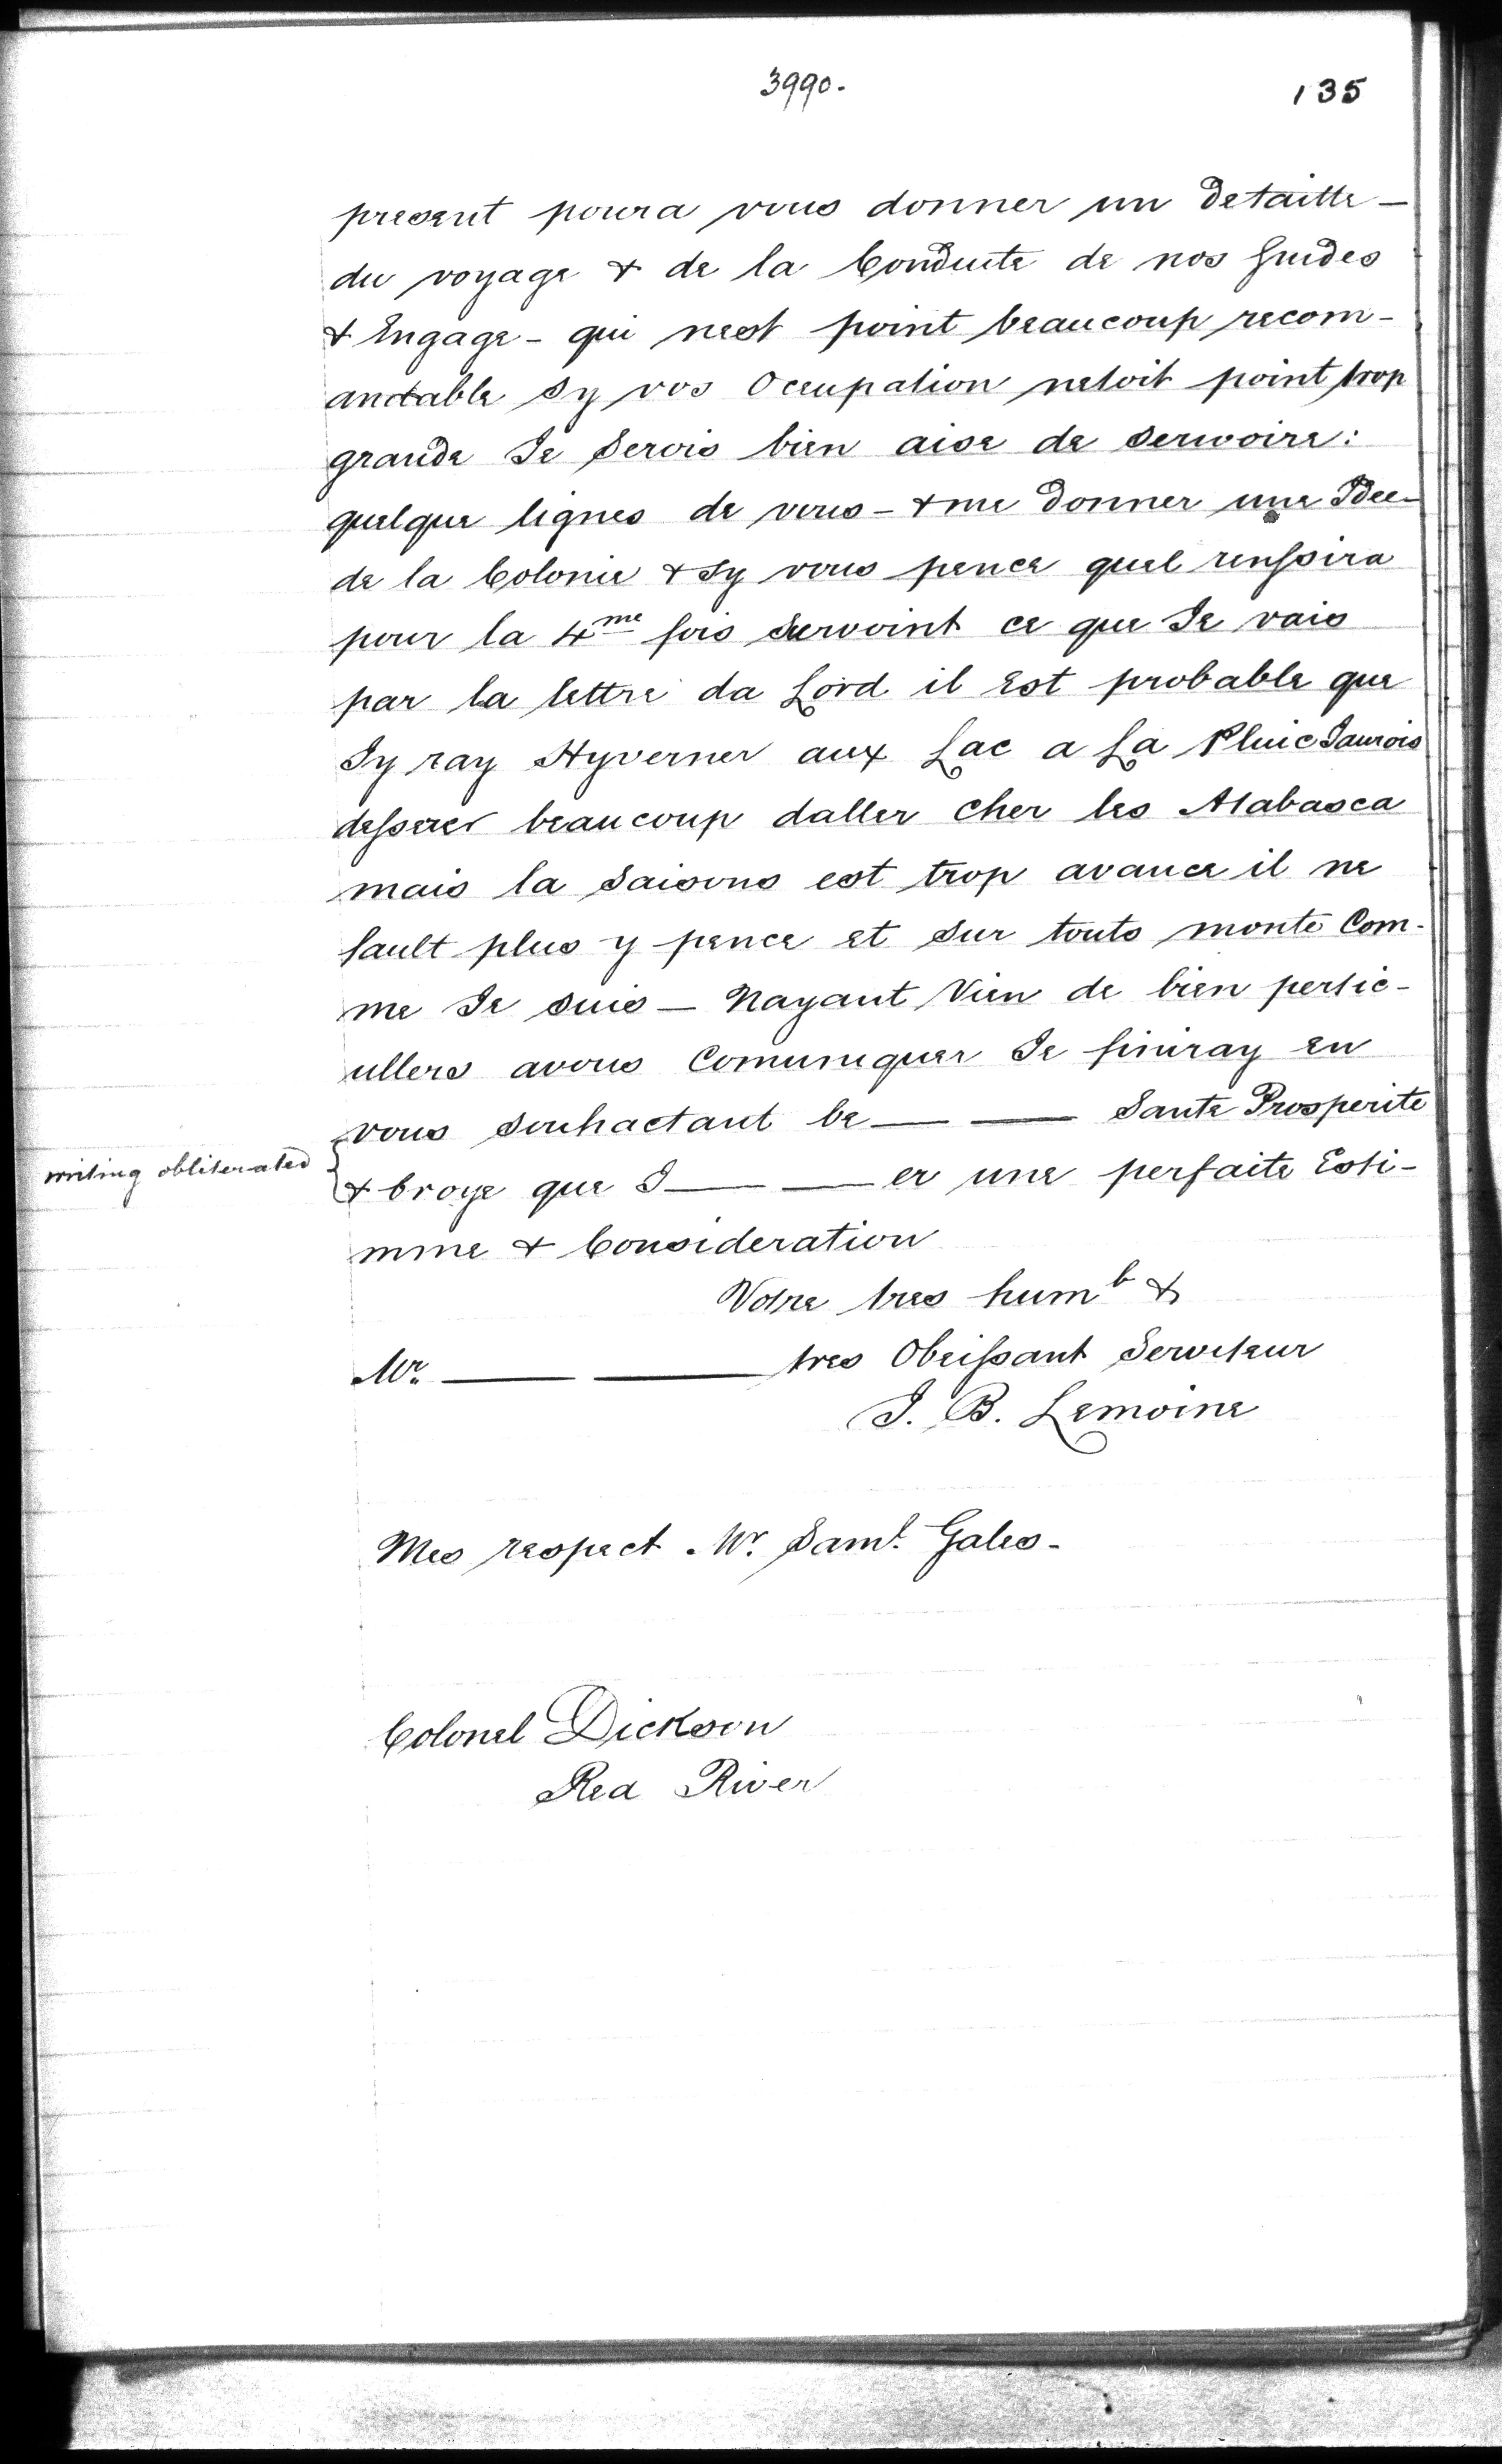 3990.
135
present poura vous donner un Detaitte -
du voyage & de la Conduite de nos Guides
& Engage - qui nest point beaucoup recom-
andable sy vos Ocupation netoit point trop
grande Je Serois bien aise de servoire:
quelque lignes de vous - & me Donner une Idee -
de la Colonie & sy vous pence quel reussira
pour la 4me fois survoint ce que Je vais
par la lettre da Lord il Est probable que
Jy ray Hyverner aux Lac a La Pluie Jaurois
dessirer beaucoup daller cher les Atabasca
mais la saisons est trop avance il ne
fault plus y pence et sur touts monte Com-
me Je suis - Nayant Vien de bien pertic-
ullers avous Comuniquer Je finiray en
vous souhactant be— — Sante Prosperite
writing obliterated
& Croye que J— —er une perfaite Esti-
mme & Consideration
Votre tres humb &
Mr. — — tres Obeissant Serviteur
J. B. Lemoine
Mes respect Mr. Saml. Gales -
Colonel Dickson
Red River